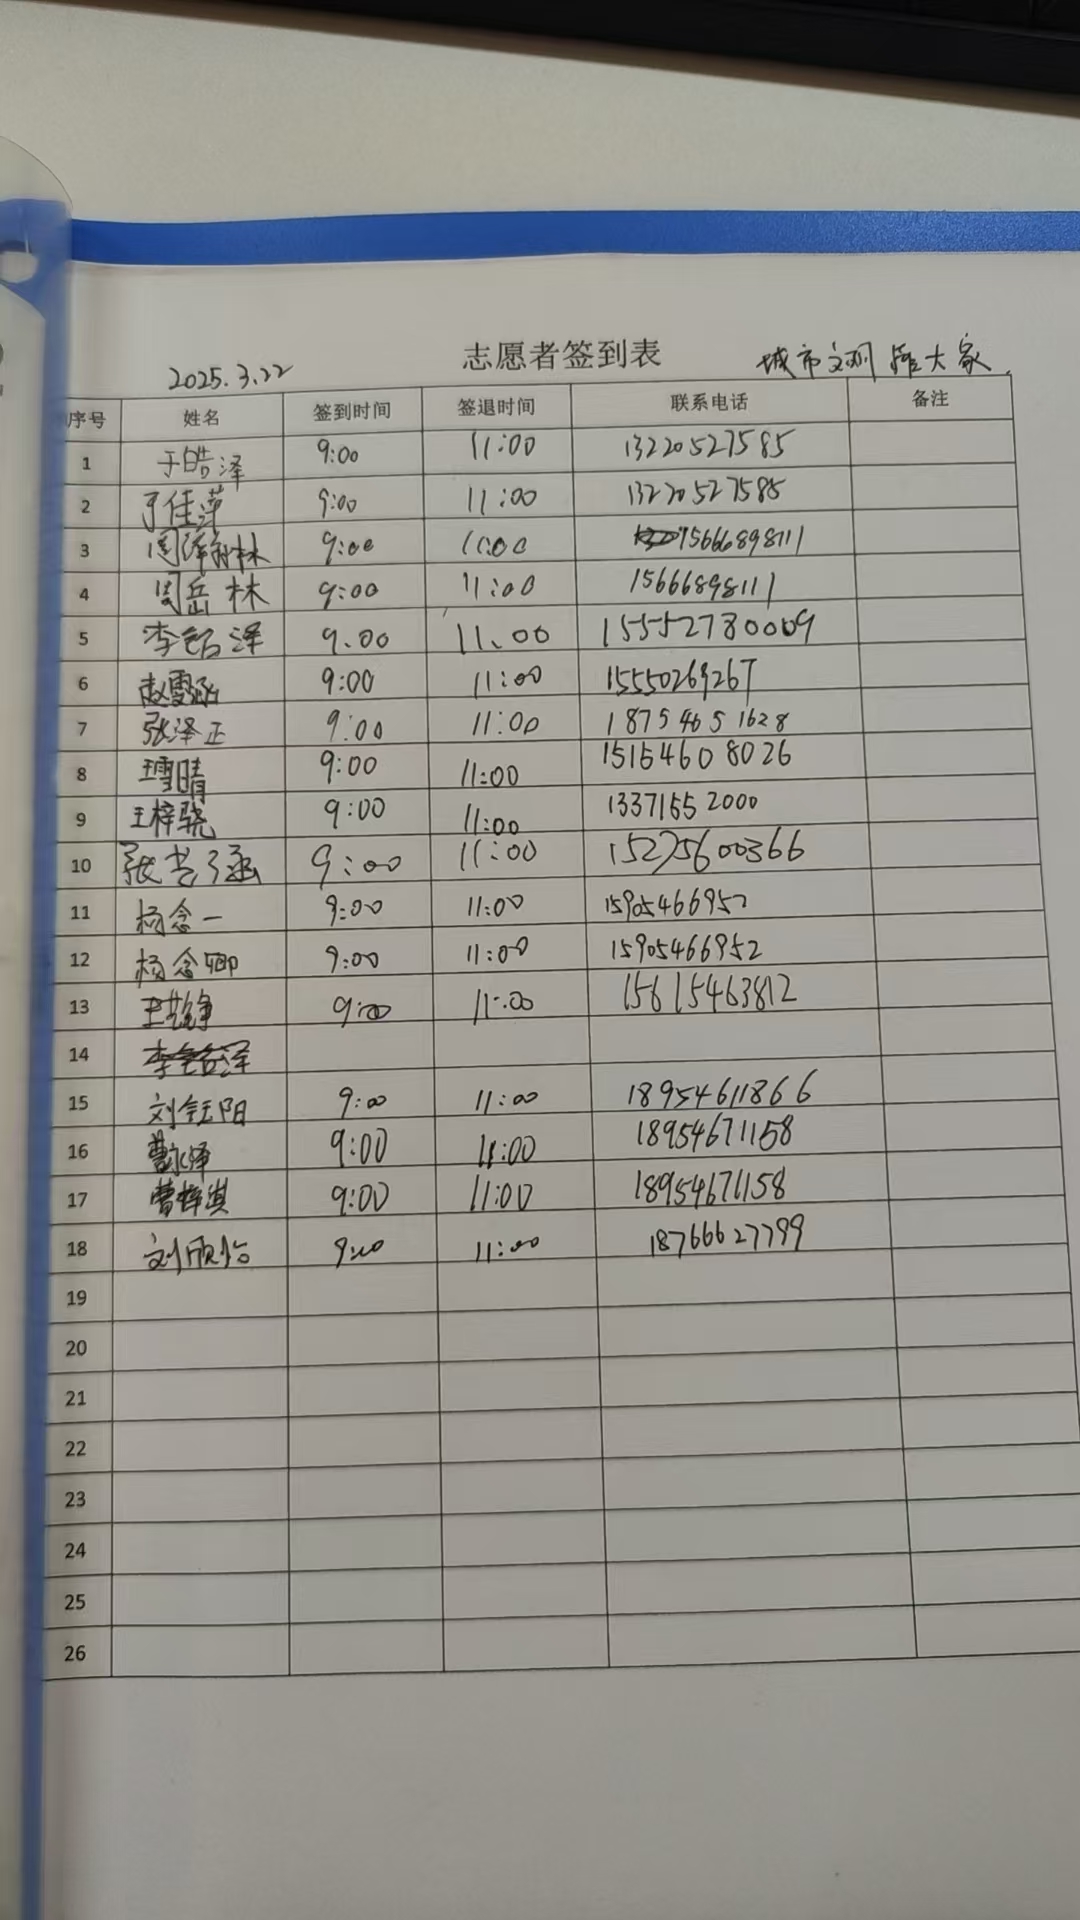 志愿者签到表
2025.3.22 城市文明 靠大家
序号 姓名 签到时间 签退时间 联系电话 备注
1 于皓泽 9:00 11:00 13220527585
2 于佳萍 9:00 11:00 13220527585
3 周泽林 9:00 11:00 15666898111
4 周岳林 9:00 11:00 15666898111
5 李铭泽 9.00 11.00 15552780009
6 赵雪涵 9:00 11:00 15550269267
7 张泽正 9:00 11:00 18754651628
8 王雪晴 9:00 11:00 15154608026
9 王梓骁 9:00 11:00 13371552000
10 张 涵 9:00 11:00 15275600366
11 杨念一 9:00 11:00 15905466952
12 杨念卿 9:00 11:00 15905466952
13 王 铮 9:00 11:00 15615463812
14 李铭泽
15 刘钰阳 9:00 11:00 18954611866
16 曹泳泽 9:00 11:00 18954671158
17 曹梓淇 9:00 11:00 18954671158
18 刘欣怡 9:00 11:00 18766627799
19
20
21
22
23
24
25
26